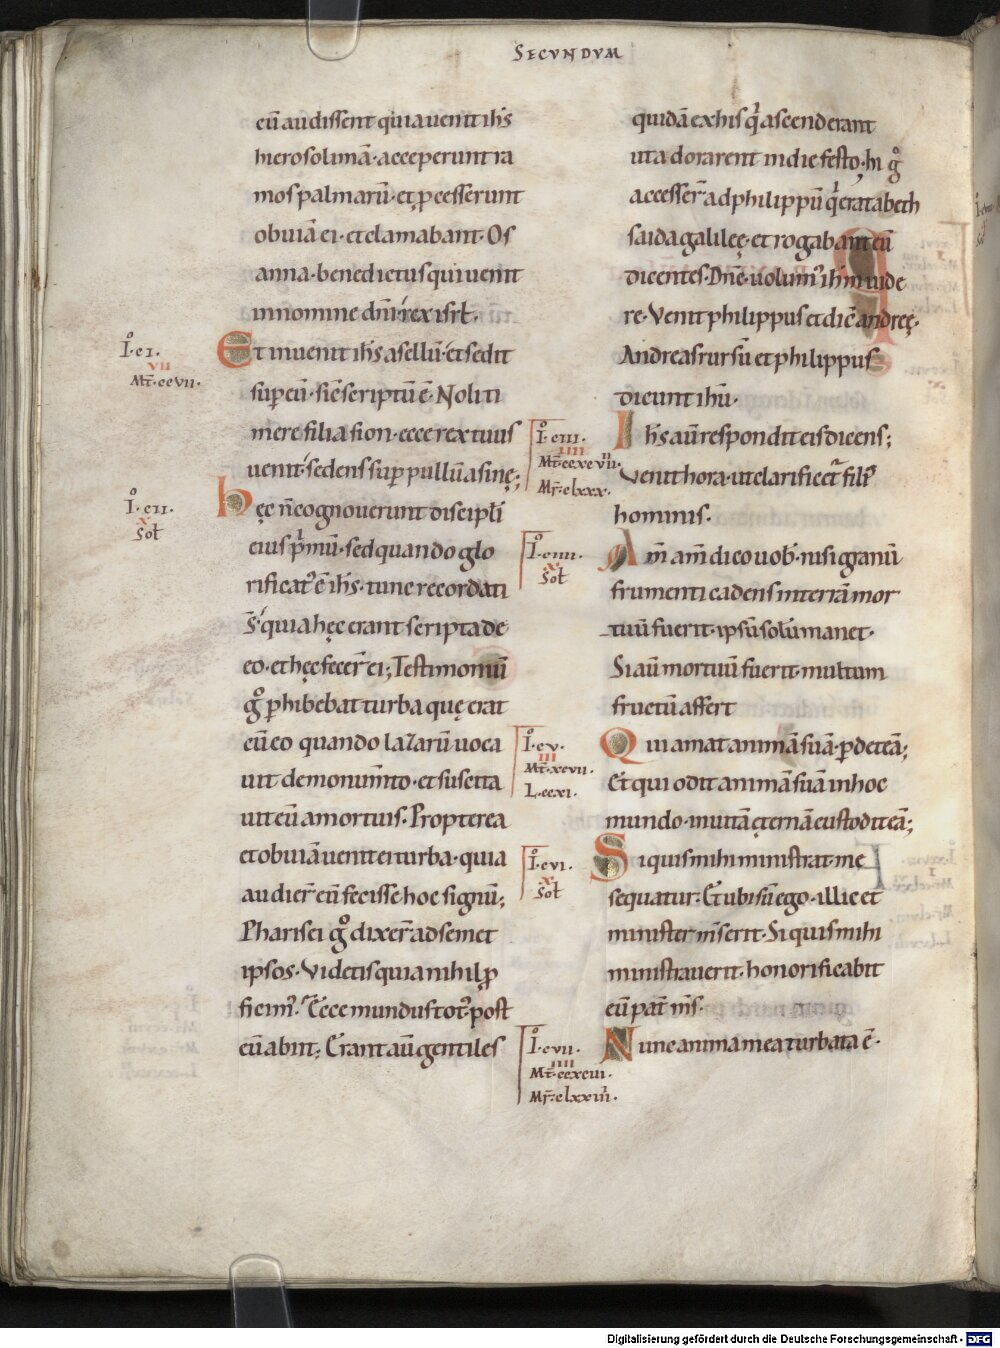 SECUNDUM
eū audissent quia uenit ih̄s
hierosolimā· acceperunt ra
mos palmarū· et p̱cesserunt
obuiā ei· et clamabant· Os
anna· benedictus qui uenit
in nomine dn̄i rex isrł·
I̊·CI·
VII
MT̄·CCVII·
Et inuenit ih̄s asellū· et sedit
sup̱ eū· sic̄ scriptū ē· Noli ti
mere filia sion· ecce rex tuus
uenit· sedens sup̱ pullū asinę;
I̊·CII·
X
Soł
hęc n̄ cognouerunt discipłi
eius p̍mū· sed quando glo
rificatꝰ ē ih̄s· tunc recordati
s̄· quia hęc erant scripta de
eo· et hęc fecer̄ ei; Testimoniū
g̊ p̱hibebat turba quę erat
cū eo quando lazarū uoca
uit de monum̄to· et suscita
uit eū a mortuis· Propterea
et obuiā uenit ei turba· quia
audier̄ eū fecisse hoc signū;
Pharisei g̊ dixer̄ ad semet
ipsos· Videtis quia nihil p̱
ficimꝰ· Ecce mundus totꝰ post
eū abiit; Erant aū gentiles
quidā ex his q̍ ascenderant
ut adorarent in die festo; hi g̊
accesser̄ ad philippū q̍ erat a beth
saida galileę· et rogabant eū
dicentes· Dn̄e· uolumꝰ ih̄m uide
re· Venit philippus et dic̄ andreę·
Andreas rursū et philippus
dicunt ih̄u·
I̊·CIII·
IIII
MT̄·CCXCVII·
MR̄·CLXXX·
Ih̄s aū respondit eis dicens;
Venit hora· ut clarificet͛ filiꝰ
hominis·
I̊·CIIII·
X
Soł
Am̄ am̄ dico uob̄· nisi granū
frumenti cadens in terrā mor
tuū fuerit· ipsū solū manet·
Si aū mortuū fuerit· multum
fructū affert
I̊·CV·
III
MT̄·XCVII·
L·CCXI·
Qui amat animā suā· p̱det eā;
Et qui odit animā suā in hoc
mundo· in uitā ęternā custodit eā;
I̊·CVI·
X
Soł
Si quis mihi ministrat· me
sequatur· Et ubi sū ego· illic et
minister m̄s erit· Si quis mihi
ministrauerit· honorificabit
eū pat̄ m̄s·
I̊·CVII·
IIII
MT̄·CCXCIII·
MR̄·CLXXIII·
Nunc anima mea turbata ē·
Digitalisierung gefördert durch die Deutsche Forschungsgemeinschaft - DFG